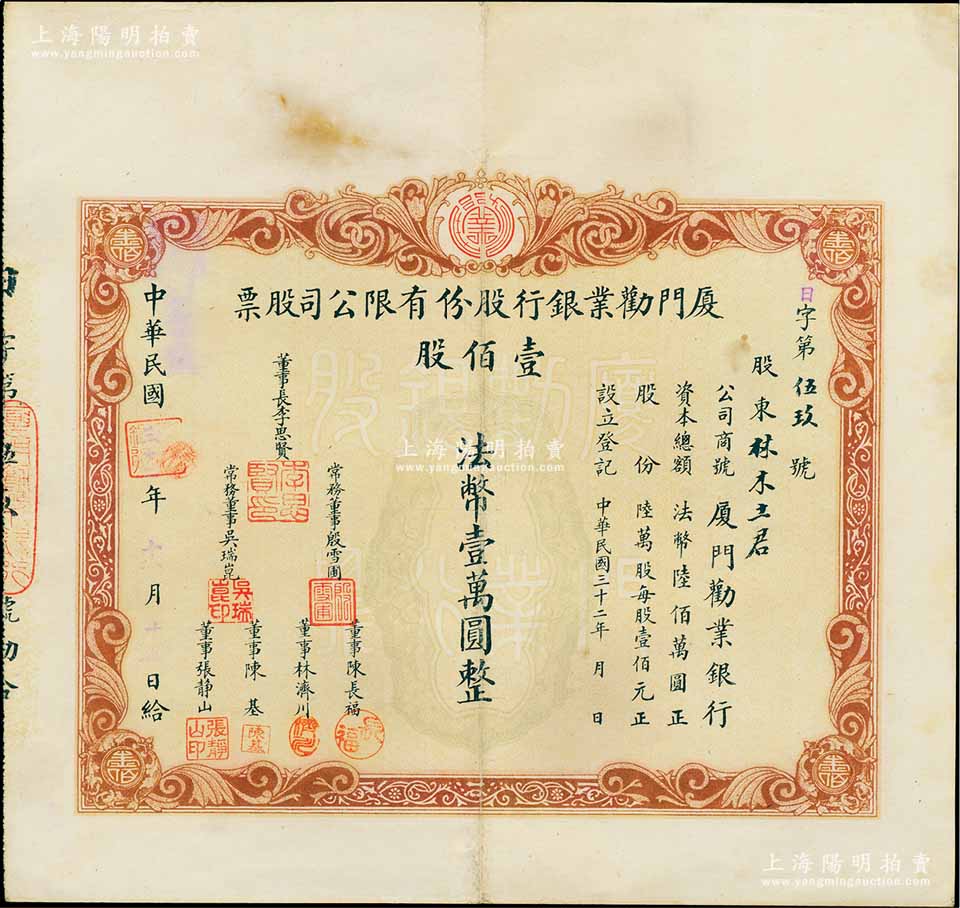 上海陽明拍賣
www.yangmingauction.com
勸業
廈門勸業銀行股份有限公司股票
壹佰股
日字第伍玖號
股東林木土君
公司商號廈門勸業銀行
資本總額法幣陸佰萬圓正
股份陸萬股每股壹佰元正
設立登記中華民國三十二年 月 日
法幣壹萬圓整
董事長李思賢
李思賢印
常務董事殷雪圃
殷雪圃
常務董事吳瑞崑
吳瑞崑印
董事陳長福
長福
董事林濟川
董事陳基
陳基
董事張靜山
張靜山印
中華民國 年十 月十 日給
字第伍玖號
上海陽明拍賣
www.yangmingauction.com
上海陽明拍賣
www.yangmingauction.com